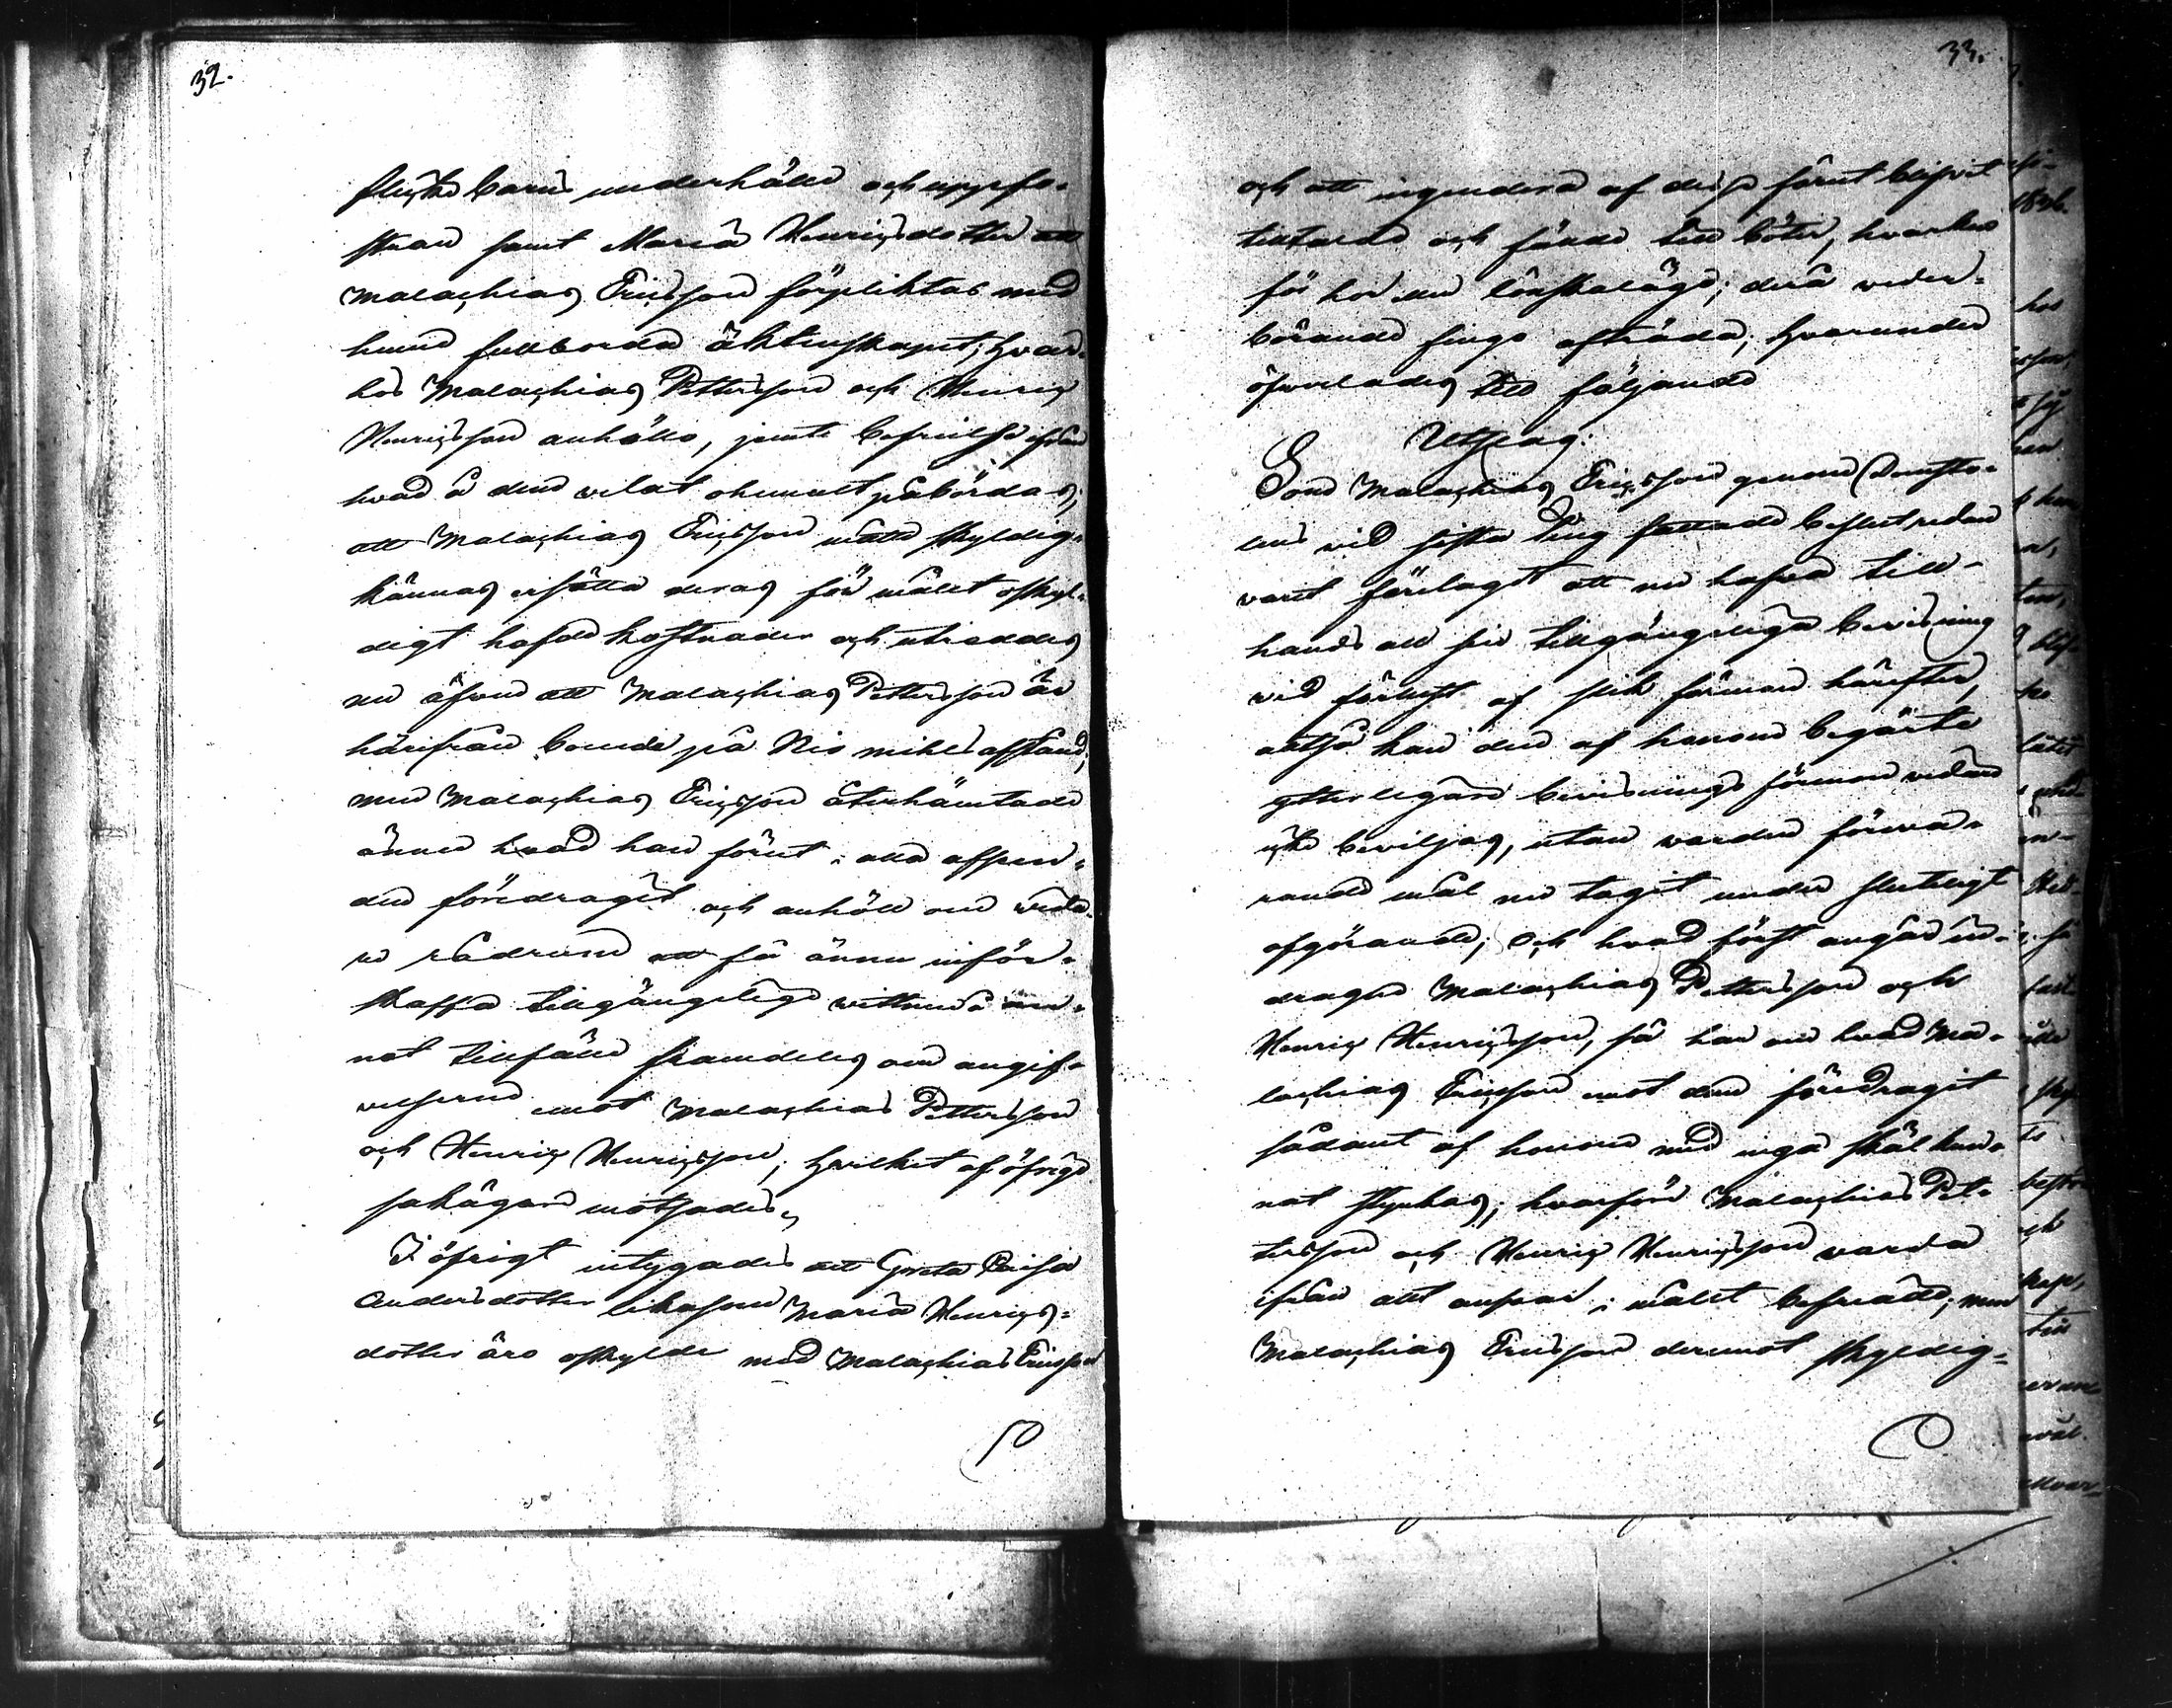 32.
flickebarns underhåll och uppfo-
stran samt Maria Henricsdotter att
Malachias Ericsson förpliktas med
henne fullborda äktenskapet; hvar-
hos Malachias Pettersson och Henric
Henricsson anhöllo, jemte befrielse ifrån
hvad å dem velat ohemult påbördas,
att Malachias Ericsson måtte skyldig-
kännas ersätta deras för målet oskyl-
digt hafde kostnader och utreddes
nu äfven att Malachias Pettersson är
härifrån boende på Nio mihls afstånd;
men Malachias Ericsson återhämtade
ännu hvad han förut i alla afseen-
den föredragit och anhöll om vida-
re rådrum att få ännu inför-
skaffa tillgänglige vittnen å an-
nat tillfälle framdeles om angif-
velserne emot Malachias Pettersson
och Henric Henricsson; hvilket af öfrige
sakägare motsades.
I öfrigt intygades att Greta Caisa
Andersdotter likasom Maria Henrics-
dotter äro oskylde med Malachias Ericsson
33.
och att ingendera af dessa förut blifvit
tilltalde och fällde till böter, hvarken
för hor eller lönskaläge; derå veder-
börande fingo afträda, hvarunder
öfverlades till följande
Utslag:
Som Malachias Ericsson genom Domsto-
lens vid sista Ting fattade beslut redan
varit förelagdt att nu hafva till-
hands all sin tillgängeliga bevisning
vid förlust af slik förmon härefter,
altså kan den af honom begärte
ytterligare bevisnings förmon vidare
icke beviljas, utan warder förewa-
rande mål nu tagit under sluteligt
afgörande; Och hvad först angår in-
dragne Malachias Pettersson och
Henric Henricsson, så har om hvad Ma-
lachias Ericsson mot dem föredragit
sådant af honom med inga skäl kun-
nat styrkas; hvarföre Malachias Pet-
tersson och Henric Henricsson warda
ifrån allt ansvar i målet befriade; men
Malachias Ericsson deremot skyldig-